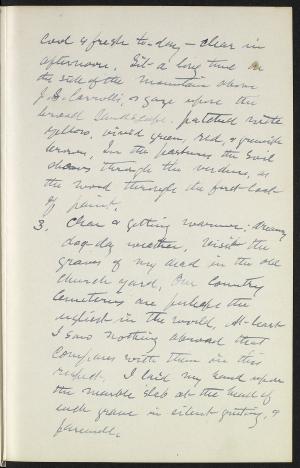 cool & fresh to-day – clear in
afternoon. Sit a long time on
the side of the mountain above
J. S. Corrolli's, & gaze upon the
broad landscape. patched with
yellow, vivid green, red, & greenish
brown. In the pastures the soil
shows through the verdure, as
the wood through the first coat
of paint.
3. Clear & getting warmer; dreamy
dog-day weather. Visit the
graves of my dead in the old
church yard. Our Country
Cemeteries are perhaps the
ugliest in the world. At least
I saw nothing abroad that
compares with them in this
respect. I laid my hand upon
the marble slab at the head of
each grave in silent greeting, &
farewell.